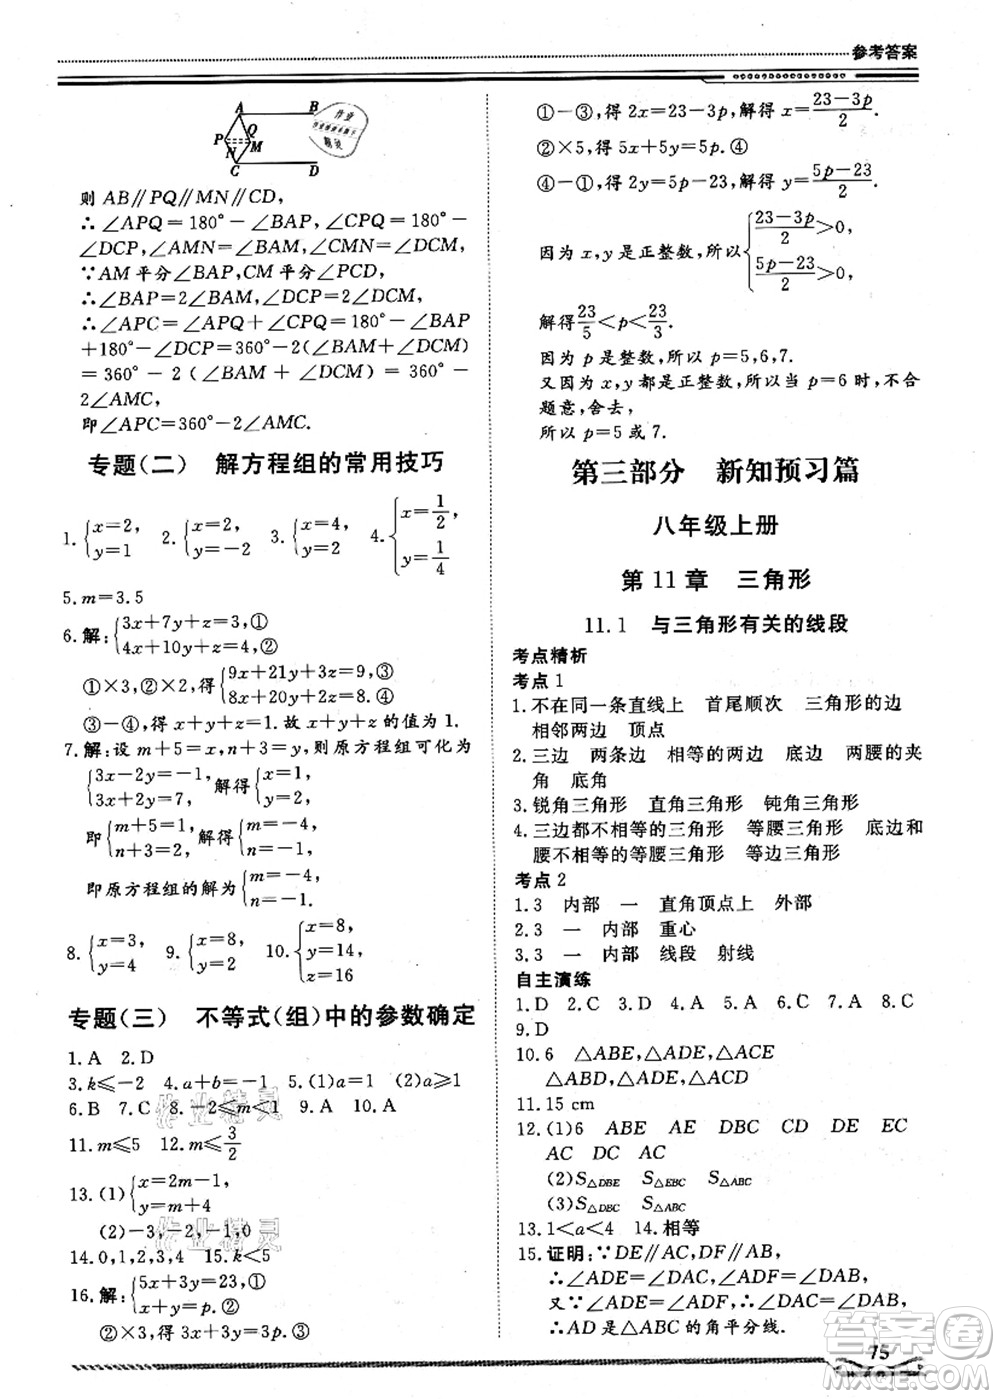 参考答案
A B
P Q
N M
C D
则 AB∥PQ∥MN∥CD,
∴∠APQ=180°-∠BAP, ∠CPQ=180°-
∠DCP,∠AMN=∠BAM,∠CMN=∠DCM,
∵AM 平分∠BAP,CM 平分∠PCD,
∴∠BAP=2∠BAM,∠DCP=2∠DCM,
∴∠APC=∠APQ+∠CPQ=180°-∠BAP
+180°-∠DCP=360°-2(∠BAM+∠DCM)
=360°-2(∠BAM+∠DCM)=360°-
2∠AMC,
即∠APC=360°-2∠AMC.
专题(二) 解方程组的常用技巧
1.{x=2, y=1 2.{x=2, y=-2 3.{x=4, y=4 4.{x=1/2, y=1/4
5.m=3.5
6.解:{3x+7y+z=3,① 4x+10y+z=4,②
①×3,②×2,得{9x+21y+3z=9,③ 8x+20y+2z=8.④
③-④,得x+y+z=1.故x+y+z的值为1.
7.解:设 m+5=x,n+3=y,则原方程组可化为
{3x-2y=-1, 3x+2y=7, 解得{x=1, y=2.
即{m+5=1, n+3=2, 解得{m=-4, n=-1,
即原方程组的解为{m=-4, n=-1.
8.{x=3, y=4 9.{x=8, y=8 10.{x=8, y=14, z=16
专题(三) 不等式(组)中的参数确定
1.A 2.D
3.k≤-2 4.a+b=-1 5.(1)a=1 (2)a≥1
6.B 7.C 8.-2≤m<1 9.A 10.A
11.m≤5 12.m≤3/2
13.(1){x=2m-1, y=m+4
(2)-3,-2,-1,0
14.0,1,2,3,4 15.k<5
16.解:{5x+3y=23,① x+y=p.②
②×3,得 3x+3y=3p.③
①-③,得 2x=23-3p,解得x=(23-3p)/2.
②×5,得 5x+5y=5p.④
④-①,得 2y=5p-23,解得y=(5p-23)/2.
因为x,y是正整数,所以{(23-3p)/2>0, (5p-23)/2>0,
解得23/5<p<23/3.
因为 p 是整数,所以 p=5,6,7.
又因为x,y都是正整数,所以当 p=6 时,不合
题意,舍去,
所以 p=5 或 7.
第三部分 新知预习篇
八年级上册
第11章 三角形
11.1 与三角形有关的线段
考点精析
考点 1
1.不在同一条直线上 首尾顺次 三角形的边
相邻两边 顶点
2.三边 两条边 相等的两边 底边 两腰的夹
角 底角
3.锐角三角形 直角三角形 钝角三角形
4.三边都不相等的三角形 等腰三角形 底边和
腰不相等的等腰三角形 等边三角形
考点 2
1.3 内部 一 直角顶点上 外部
2.3 一 内部 重心
3.3 一 内部 线段 射线
自主演练
1.D 2.C 3.D 4.A 5.C 6.D 7.A 8.A
9.D
10.6 △ABE,△ADE,△ACE
△ABD,△ADE,△ABC
11.15 cm
12.(1)6 ABE AE DBC CD DE EC
AC DC
(2)S△DBE S△EBC S△ABC
(3)S△DBC S△ABC
13.1<a<4 14.相等
15.证明:∵DE∥AC,DF∥AB,
∴∠ADE=∠DAF,∠ADF=∠DAB,
又∵∠ADE=∠ADF,∴∠DAF=∠DAB,
∴AD是△ABC的角平分线.
75
作业精灵
作业精灵
答案圈
MXQE.COM